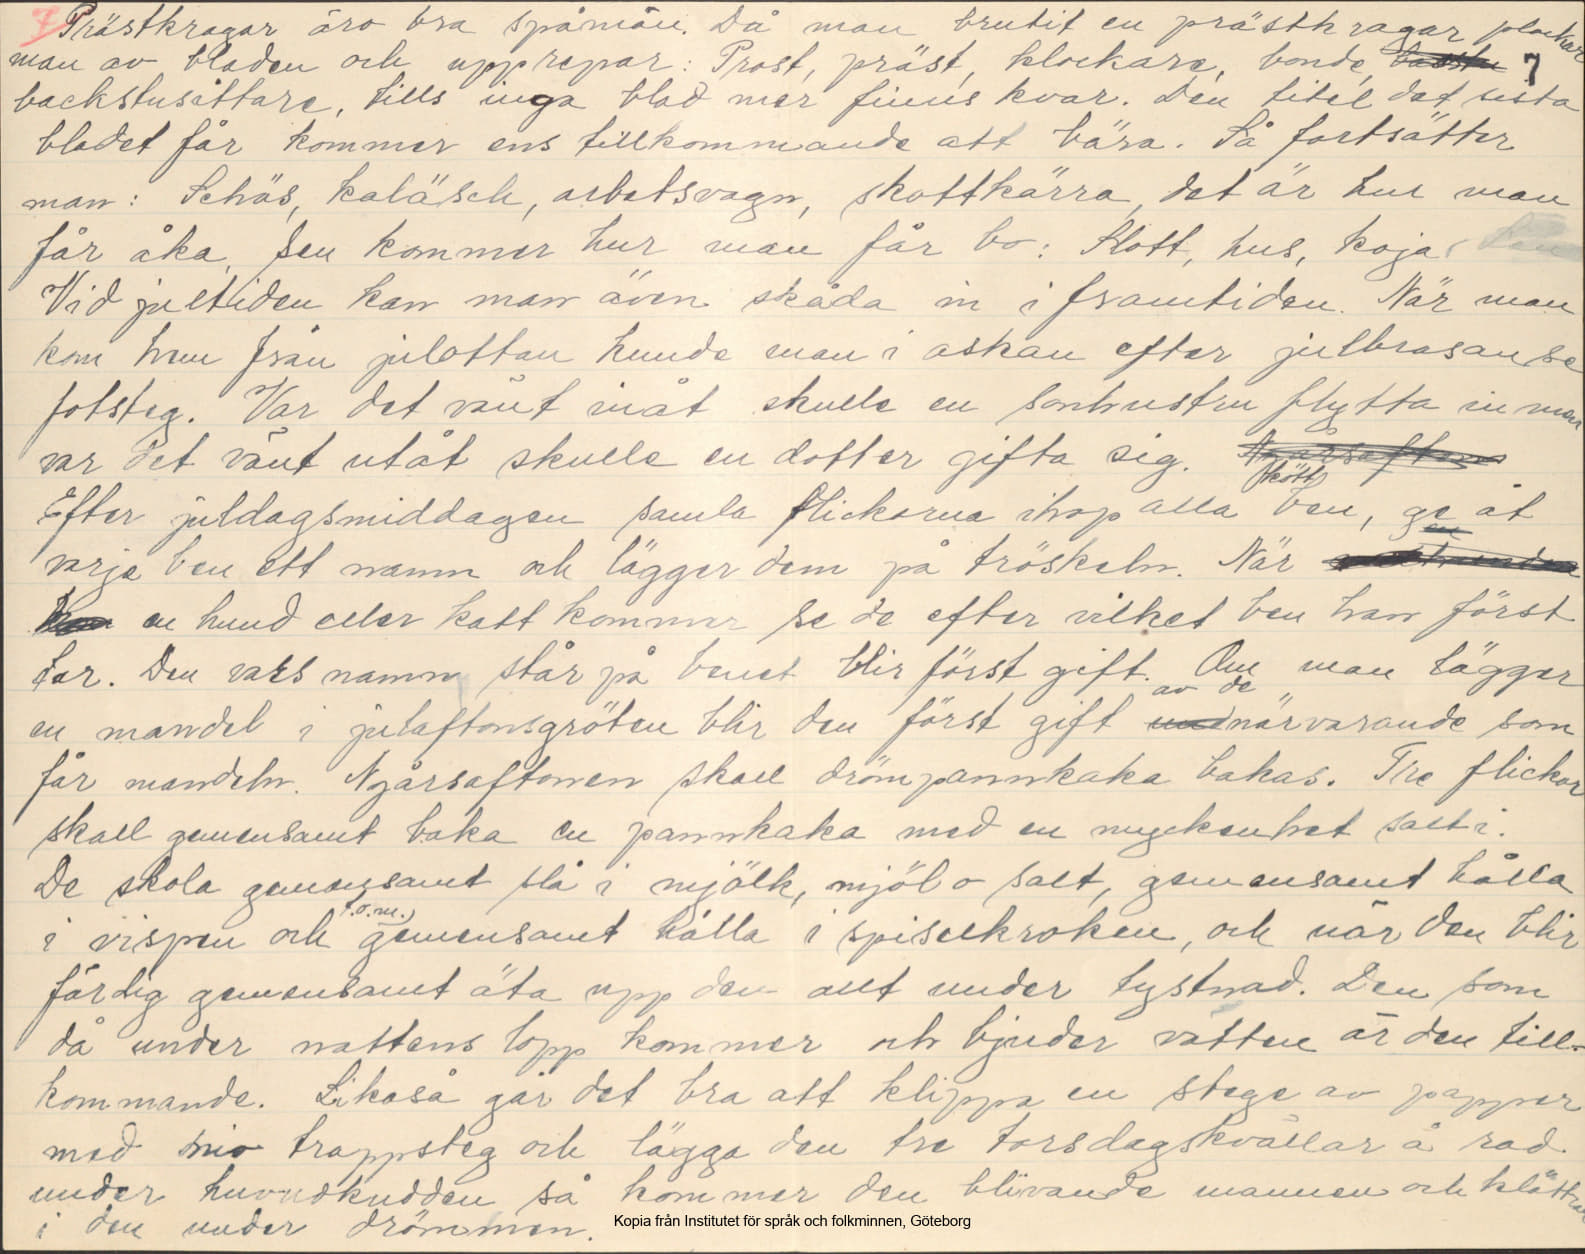 7 Prästkragar äro bra spåmän. Då man brutit en prästkragar plockar
man av bladen och upprepar: Prost, präst, klockare, bonde, 7
backstusittare, tills inga blad mer finns kvar. Den titel det sista
bladet får kommer ens tillkommande att bära. Så fortsätter
man: Schäs, kaläsch, arbetsvagn, skottkärra, det är hur man
får åka, sen kommer hur man får bo: Slott, hus, koja.
Vid jultiden kan man även skåda in i framtiden. När man
kom hem från julottan kunde man i askan efter julbrasan se
fotsteg. Var det vänt inåt skulle en sonhustru flytta in men
var det vänt utåt skulle en dotter gifta sig. Nyårsaftonen
Efter juldagsmiddagen samla flickorna ihop alla kött ben, ge åt
varje ben ett namn och lägger dem på tröskeln. När
en hund eller katt kommer se de efter vilket ben han först
tar. Den vars namn står på benet blir först gift. Om man lägger
en mandel i julaftonsgröten blir den först gift av de närvarande som
får mandeln. Nyårsaftonen skall drömpannkaka bakas. Tre flickor
skall gemensamt baka en pannkaka med en myckenhet salt i.
De skola gemensamt slå i mjölk, mjöl o salt, gemensamt hålla
i vispen och t.o.m. gemensamt hålla i spiselkroken, och när den blir
färdig gemensamt äta upp den allt under tystnad. Den som
då under nattens lopp kommer och bjuder vatten är den till-
kommande. Likaså går det bra att klippa en stege av papper
med nio trappsteg och lägga den tre torsdagskvällar å rad
under huvudkudden så kommer den blivande mannen och klättrar
i den under drömmen.
Kopia från Institutet för språk och folkminnen, Göteborg